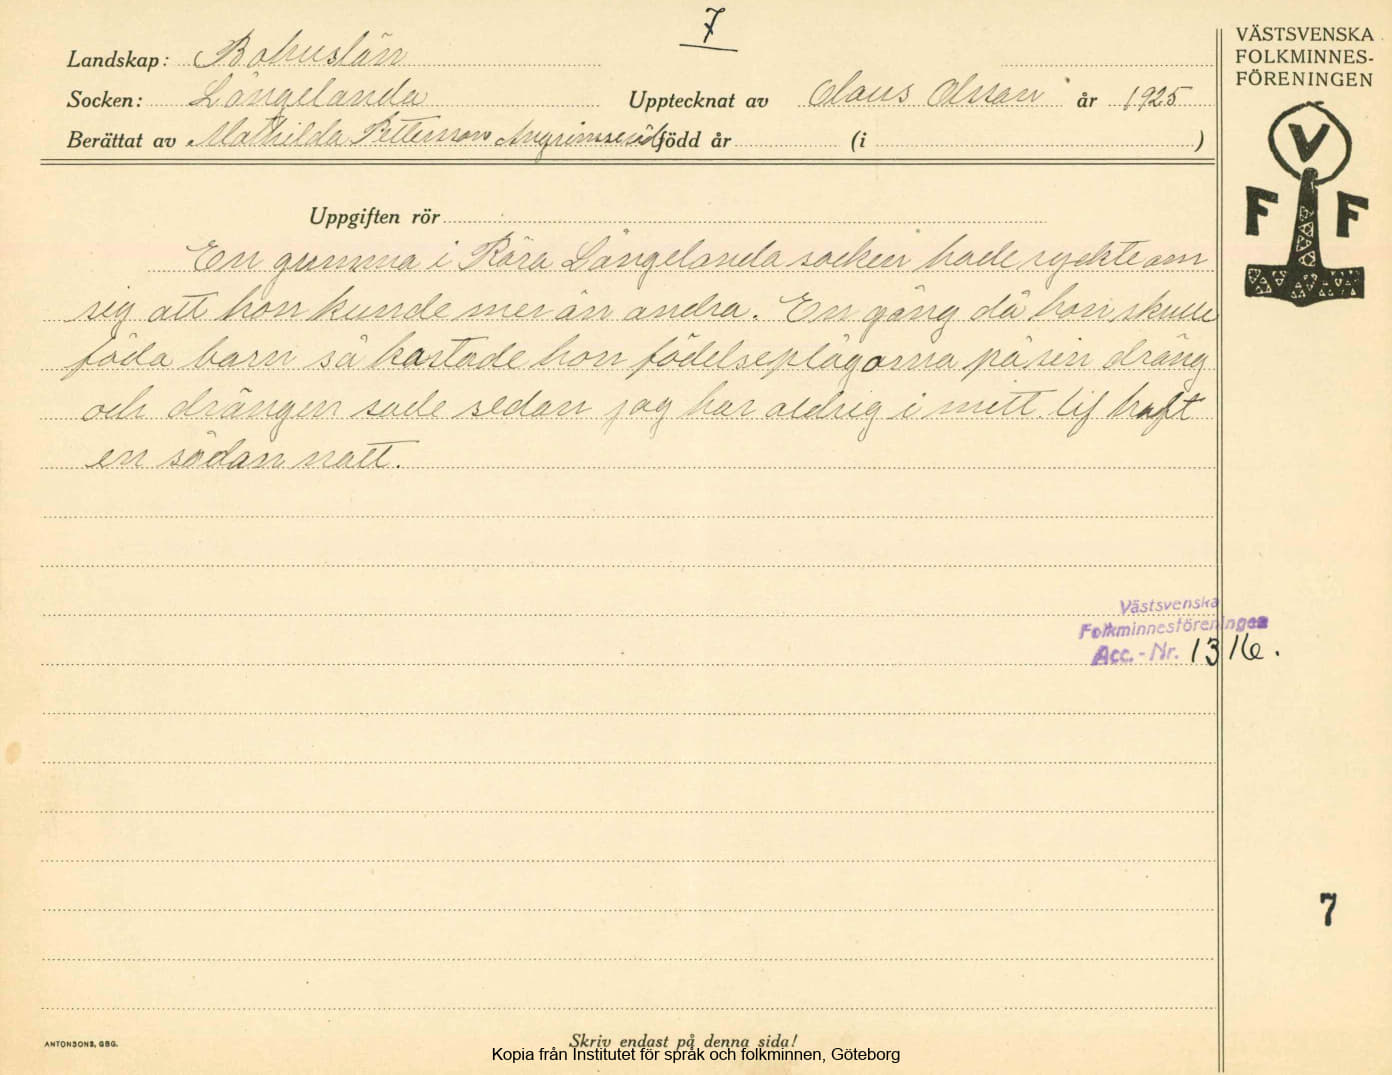 7
VÄSTSVENSKA
FOLKMINNES-
FÖRENINGEN
V
F F
Landskap: Bohuslän
Socken: Långelanda Upptecknat av Claus Olsson år 1925
Berättat av Mathilda Petterson född år (i )
Uppgiften rör
En gumma i Röra Långelanda socken hade rykte om
sig att hon kunde mer än andra. En gång då hon skulle
föda barn så kastade hon födelseplågorna på sin dräng
och drängen sade sedan jag har aldrig i mitt lif haft
en sådan natt.
Västsvenska
Folkminnesföreningen
Acc.-Nr. 1316.
7
ANTONSONS, GBG.
Skriv endast på denna sida!
Kopia från Institutet för språk och folkminnen, Göteborg